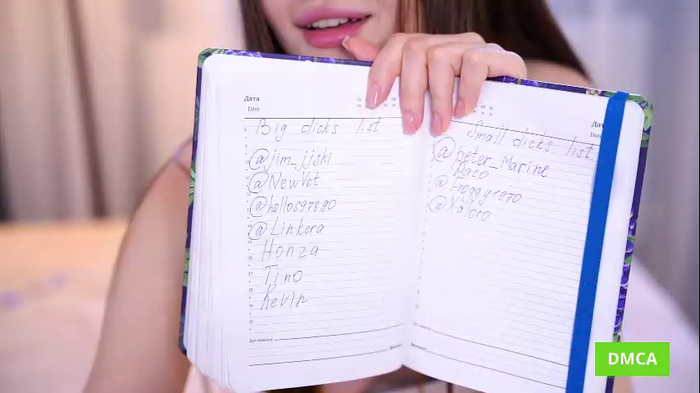 Дата
Date
Big dicks list
@jim_jiski
@NewVet
@hello597890
@Linkera
Honza
Tino
Kevin
Дата
Date
Small dicks list
@peter_Marine
Paco
@Froggy1970
DMCA